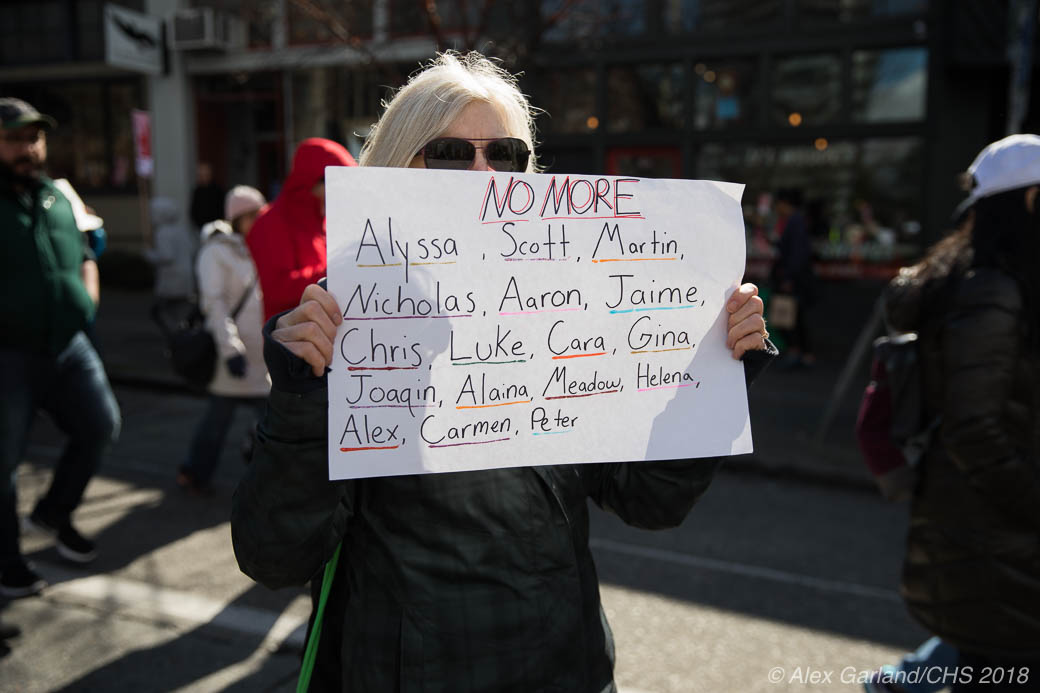 NO MORE
Alyssa , Scott, Martin,
Nicholas, Aaron, Jaime,
Chris, Luke, Cara, Gina,
Joaqin, Alaina, Meadow, Helena,
Alex, Carmen, Peter
© Alex Garland/CHS 2018